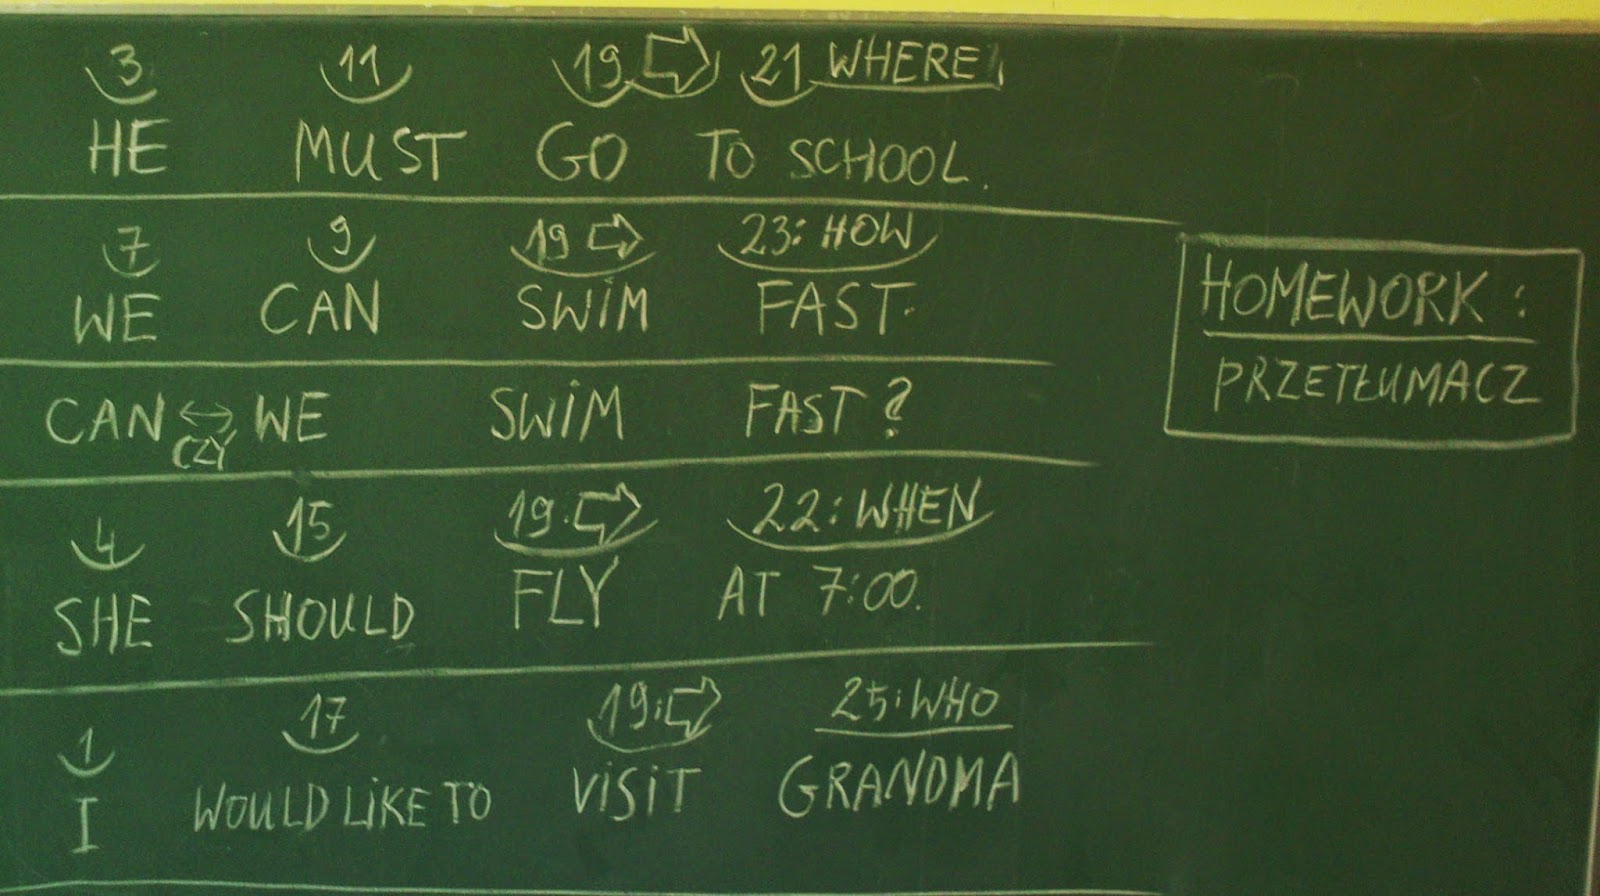 3 11 19 ⇨ 21 WHERE
HE MUST GO TO SCHOOL.
7 9 19 ⇨ 23: HOW
WE CAN SWIM FAST.
CAN ↔ WE SWIM FAST?
CZY
4 15 19: ⇨ 22: WHEN
SHE SHOULD FLY AT 7:00.
1 17 19: ⇨ 25: WHO
I WOULD LIKE TO VISIT GRANDMA
HOMEWORK:
PRZETŁUMACZ